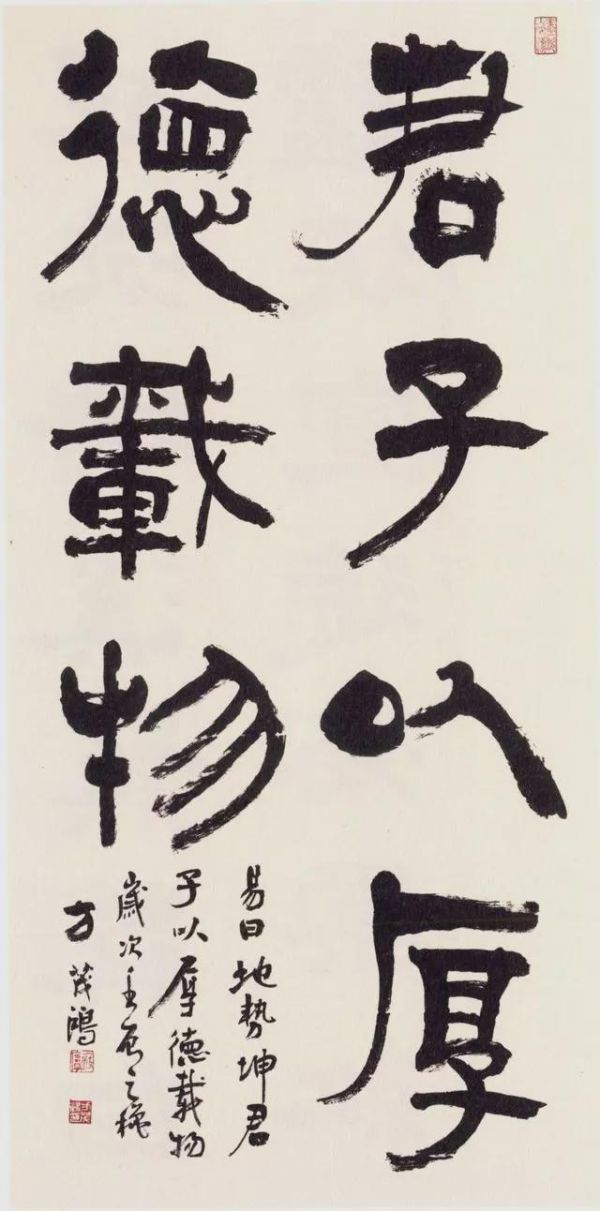 君子以厚
德載物
易曰地勢坤君
子以厚德載物
歲次壬辰之秋
方茂鴻